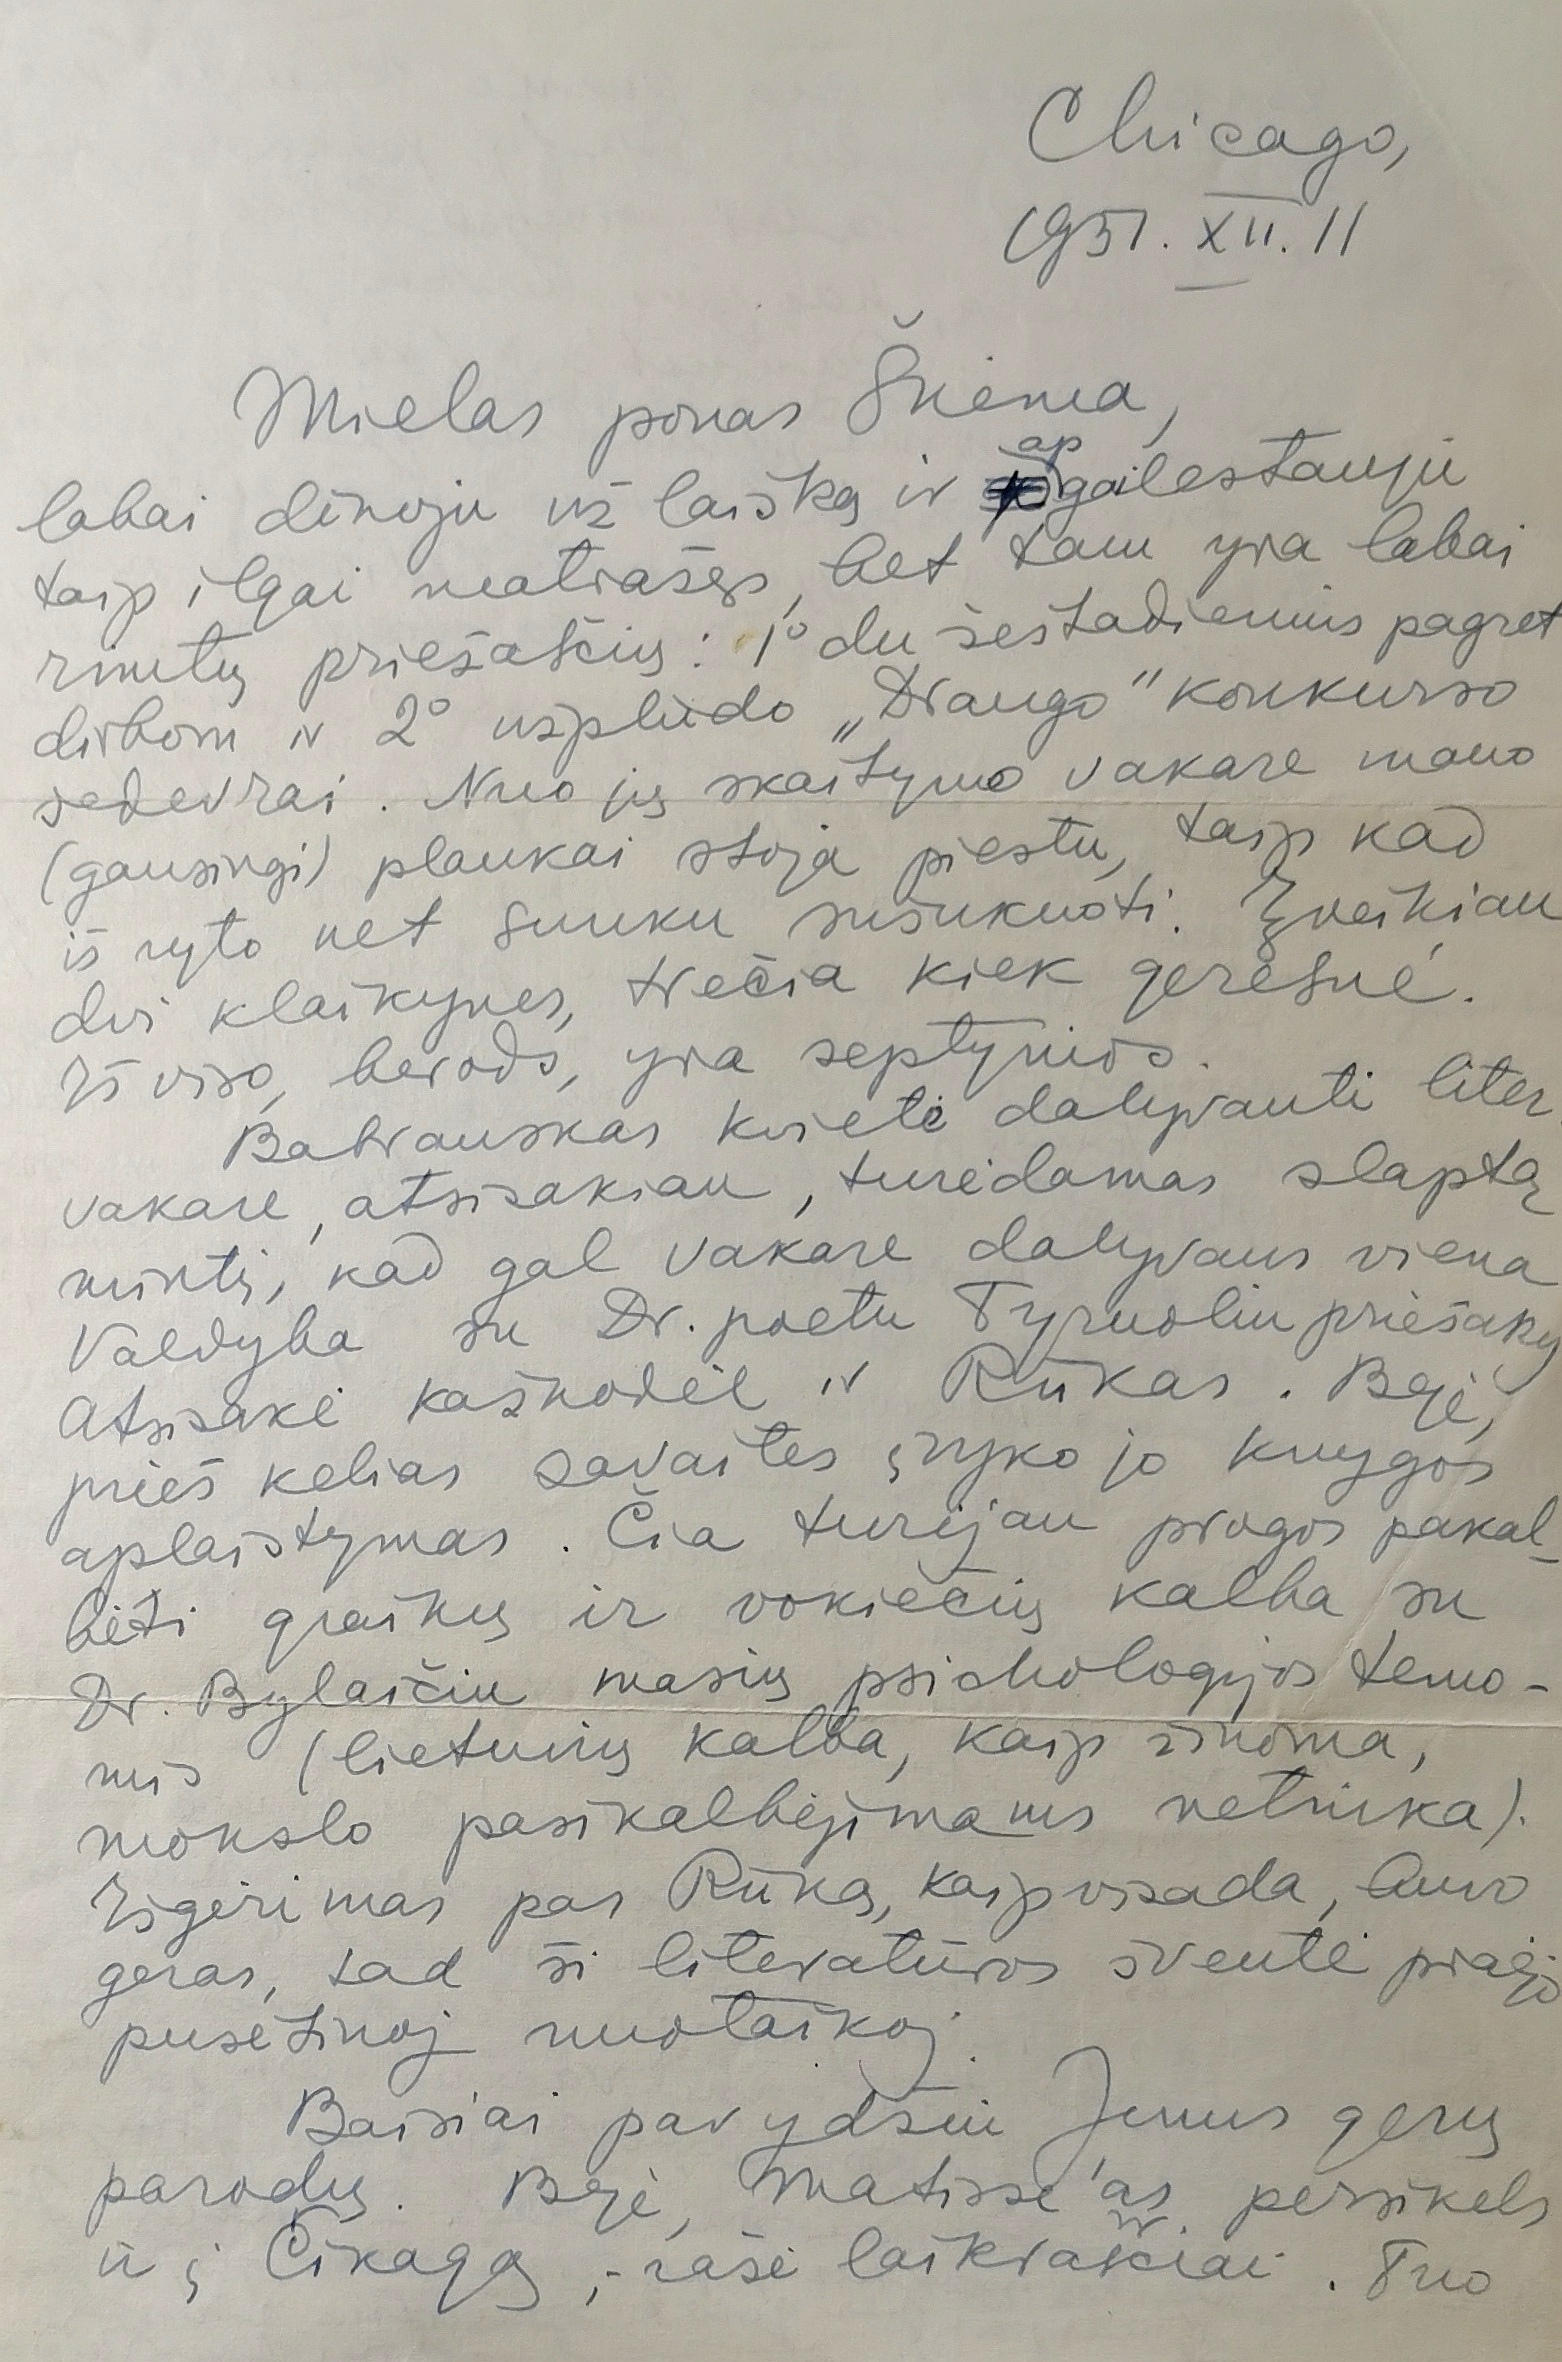 Chicago,
1951. XII. 11
Mielas ponas Škėma,
labai dėkoju už laišką ir apgailestauju
taip ilgai neatrašęs, bet tam yra labai
rimtų priežaščių: 1° du šeštadienius pagret
dirbom ir 2° užplūdo „Draugo" konkurso
šedevrai. Nuo jų skaitymo vakare mano
(gausingi) plaukai stoja piestu, taip kad
iš ryto net sunku sušukuoti. Įveikiau
dvi klaikynes, trečia kiek geresnė.
Iš viso, berods, yra septynios.
Babrauskas kvietė dalyvauti liter.
vakare, atsisakiau, turėdamas slaptą
mintį, kad gal vakare dalyvaus viena
Valdyba su Dr. poetu Tyruoliu priešaky
Atsisakė kažkodėl ir Rūkas. Beje,
prieš kelias savaites įvyko jo knygos
aplaistymas. Čia turėjau progos pakal-
bėti graikų ir vokiečių kalba su
Dr. Bylaičiu masių psichologijos temo-
mis (lietuvių kalba, kaip žinoma,
mokslo pasikalbėjimams netinka).
Išgėrimas pas Rūką, kaip visada, buvo
geras, tad ši literatūros šventė praėjo
pusėtinoj nuotaikoj.
Baisiai pavydžiu Jums gerų
parodų. Beje, Matisse'as persikels
ir į Čikagą, - rašė laikraščiai. Tuo